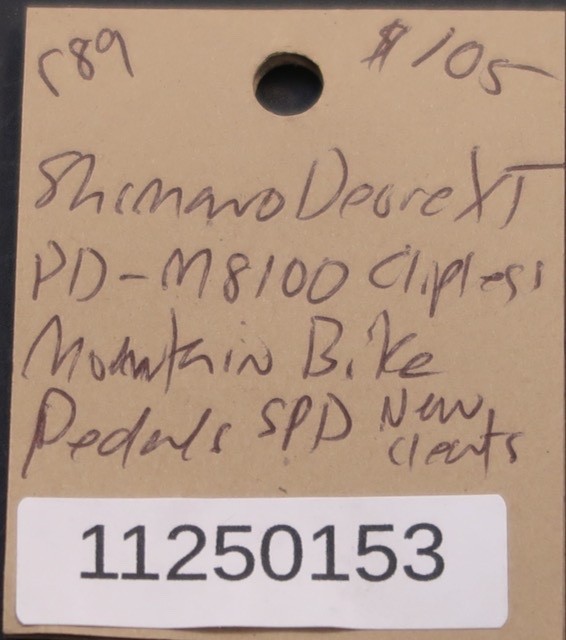 r89 $105
Shimano Deore XT
PD-M8100 Clipless
Mountain Bike
Pedals SPD New
cleats
11250153